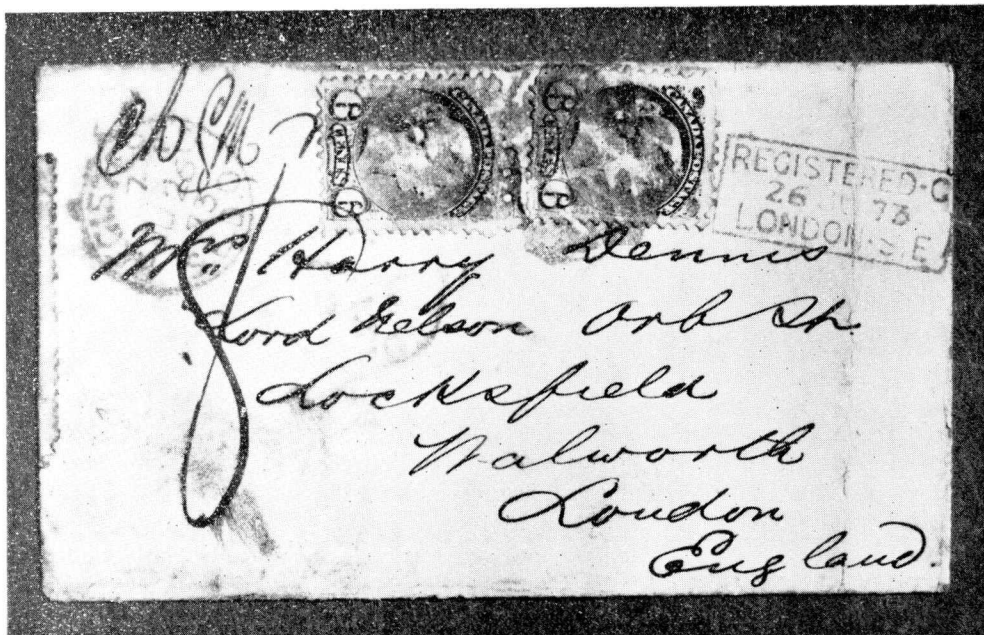 REGISTERED
26 73
LONDON E
Mrs Harry Dennis
Lord Nelson Orb St.
Locksfield
Walworth
London
England.
8